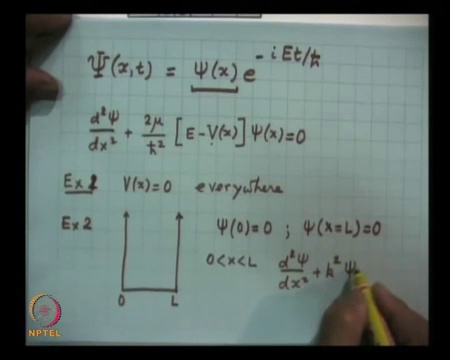 Ψ(x,t) = ψ(x) e^{-iEt/ħ}
d²ψ/dx² + 2μ/ħ² [E - V(x)] ψ(x) = 0
Ex 1 V(x) = 0 everywhere
Ex 2 ψ(0) = 0 ; ψ(x = L) = 0
0 < x < L d²ψ/dx² + k² ψ
0 L
NPTEL